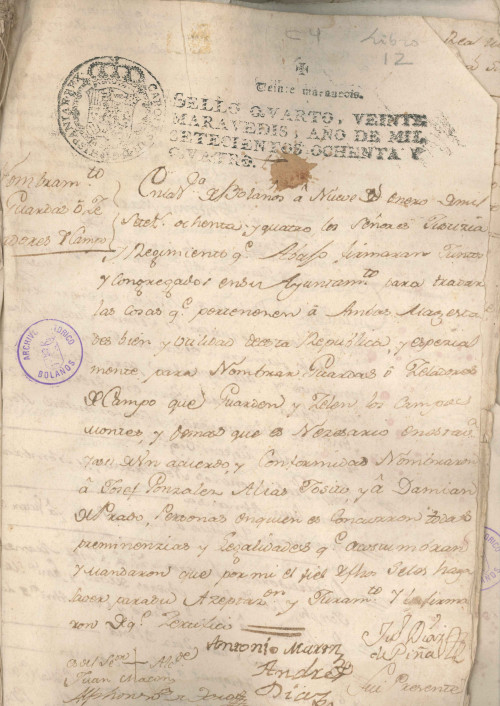 C4 Libro
12
Veinte maravedis.
SELLO QVARTO, VEINTE
MARAVEDIS, AÑO DE MIL
SETECIENTOS OCHENTA Y
QVATRO.
Nombramto
Guardas ô Ze
ladores Campo
En la Va de Bolaños â Nueve de enero de mil
Setets ochenta y quatro los Señores Justizia
y Regimiento qe Abajo firmaran Juntos
y Congregados en su Ayuntamto para tratar
las cosas qe pertenenen â Ambas Magesta
des bien y utilidad de esta Republica, y espezial
mente para Nombrar Guardas ô Zeladores
de Campo que Guarden y Zelen los Campos
Montes, y demas que es Nezesario
y de Un acuerdo, y Conformidad Nombraron
â Josef Gonzalez Alias Tosico, y â Damian
del Prado, Personas en quien es Concurren todas
preminenzias y legalidades qe acostumbran
y Mandaron que por mi el fiel de fhos Se les haga
Saver para su Azeptazon y Juramto Y lo firma
ron de qe Zertifico
Antonio Martin
Juo Diaz
de Piña
Andres
Diaz
Juan Macon
Alphonso
Fui Presente
ARCHIVO HISTORICO
BOLAÑOS